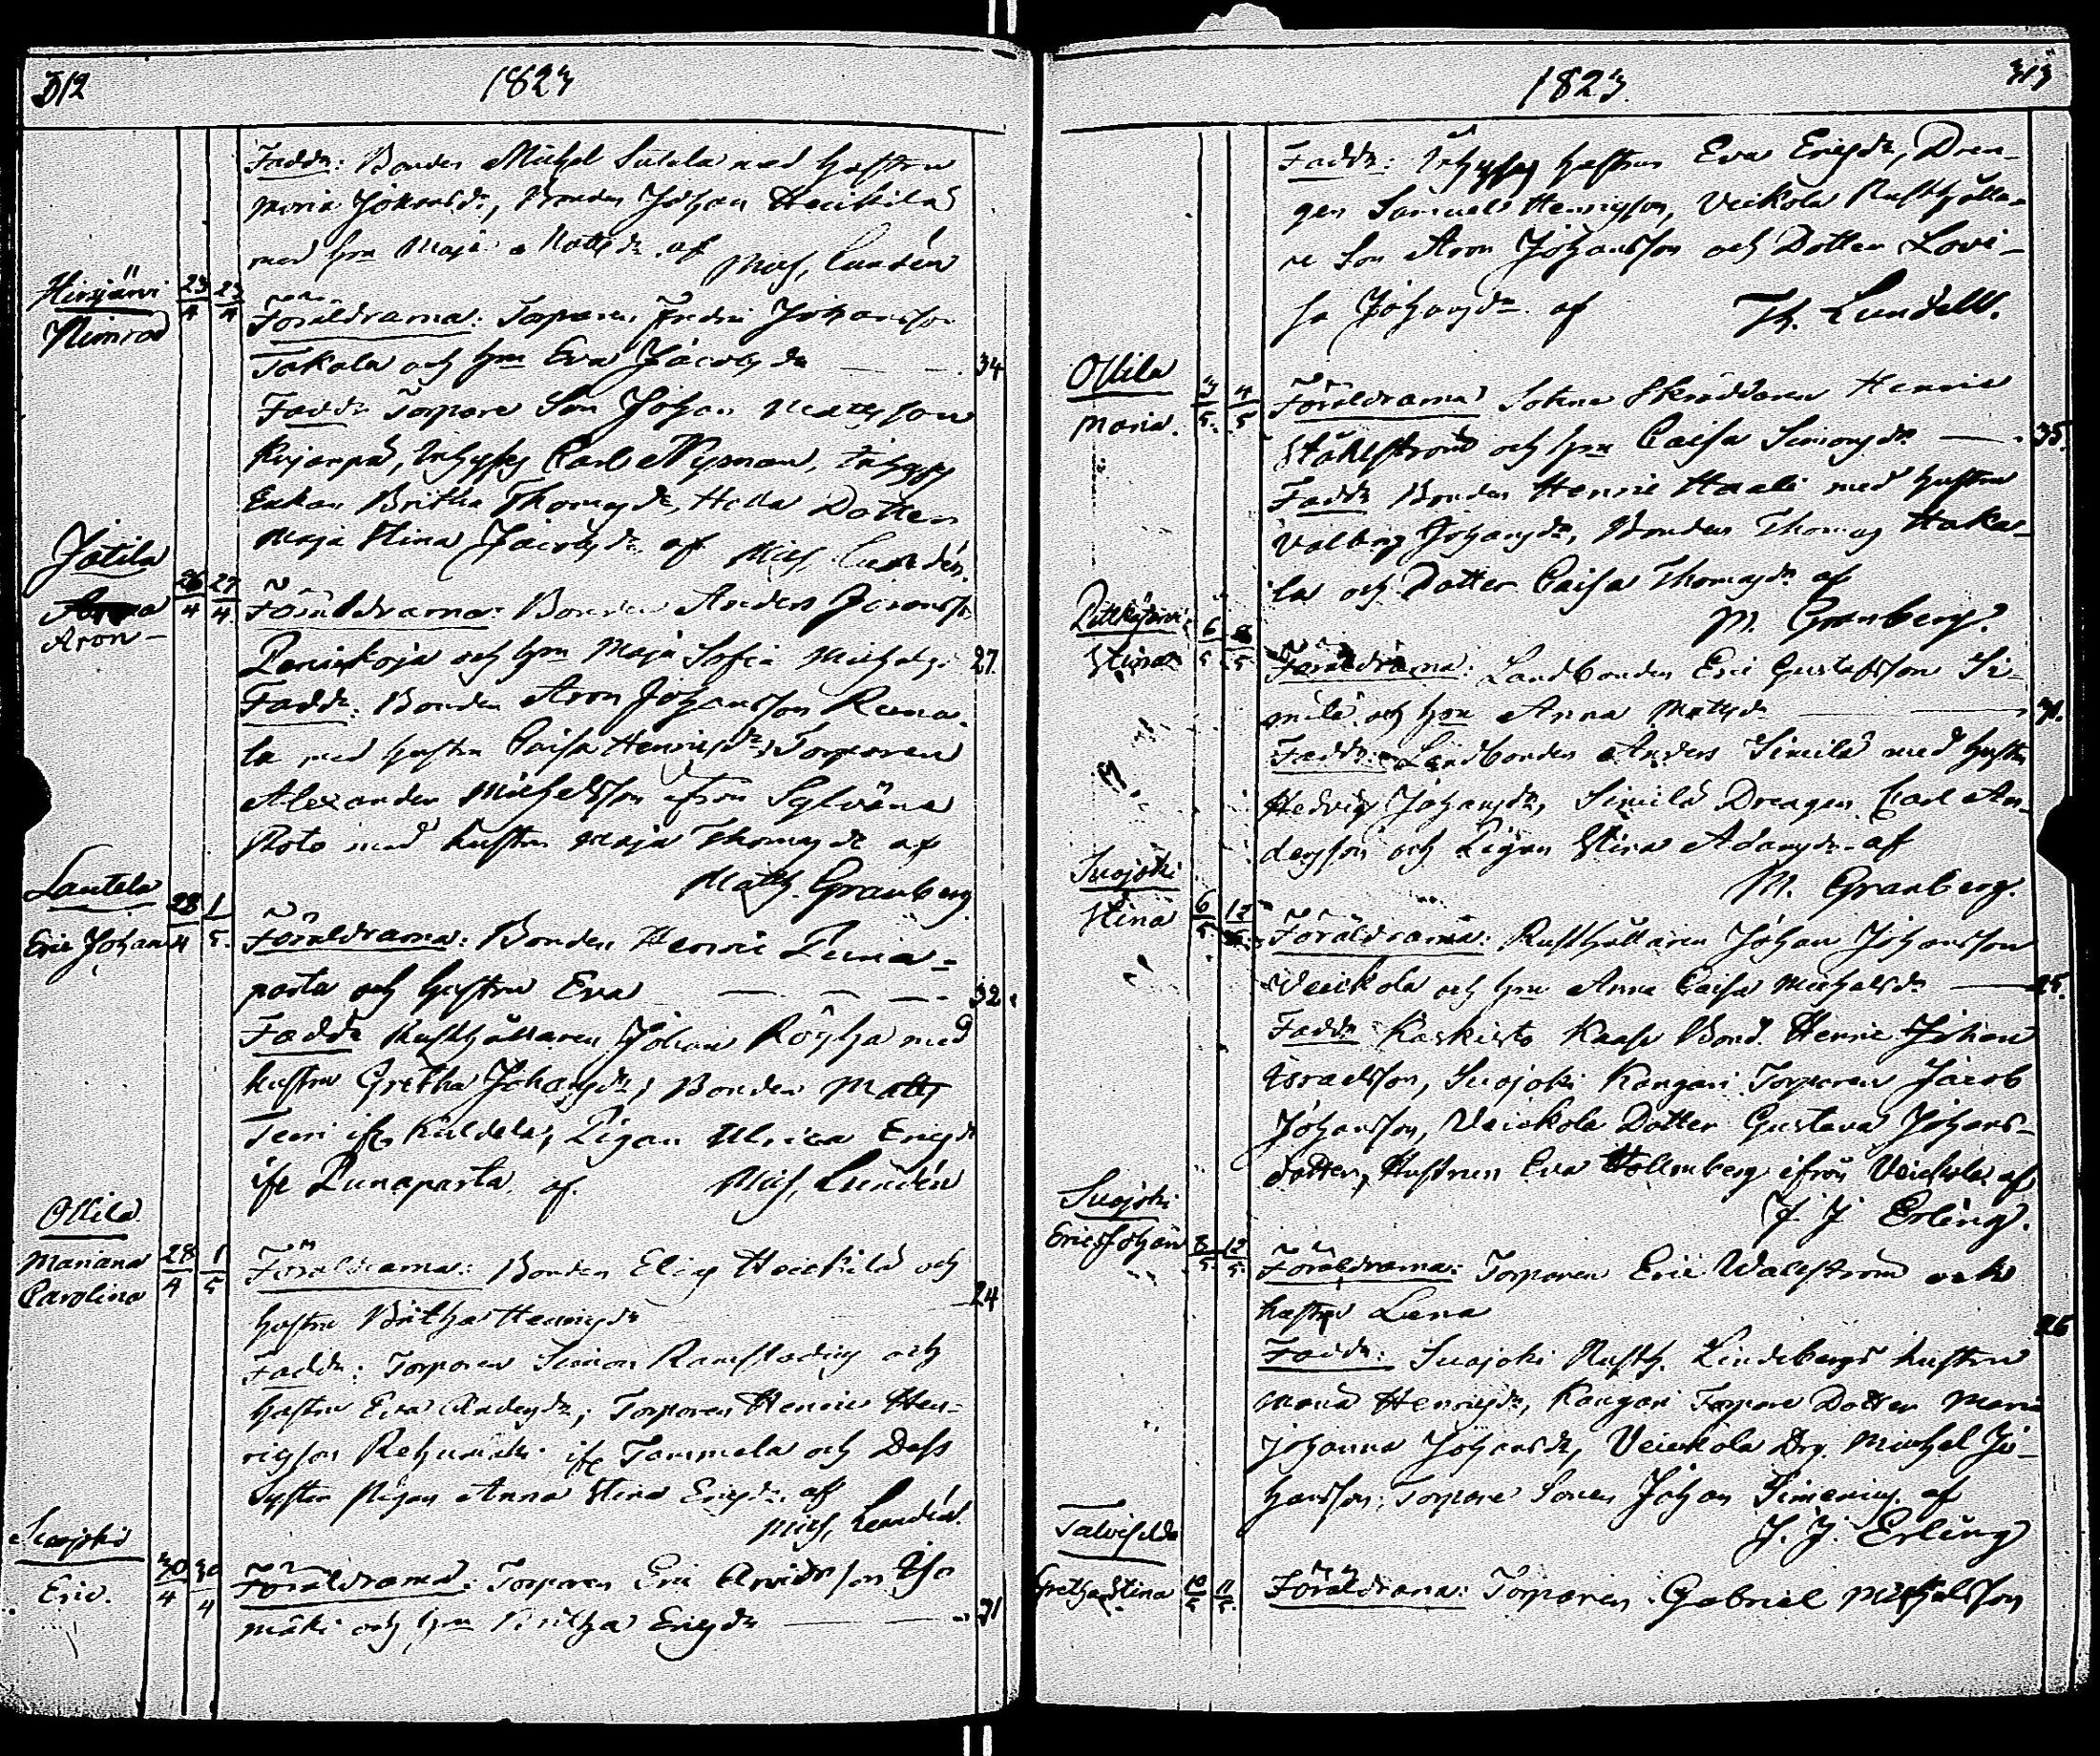 312
1823
Fadd: Bonden Michel Sutela med hustru
Maria Johansdr, Bonden Johan Heickilä
med hm Maja Mattsdr af Mich. Lundén
Hirsjärvi
Nimrod
23/4 23/4
Föräldrarna: Torparen Fredric Johansson
Tokola och hm Eva Jacobsdr — 34
Fadd: Torpare Son Johan Mattsson
Kujanpä, Inhyses Carl Nyman, Inhyses
Enkan Britha Thomasdr, Dotter
Maja Stina Jacobsdr af Mich. Lundén.
Jätilä
Aron —
26/4 27/4
Föräldrarna: Bonden Anders
och hm Maja Sofia Michelsd: 27.
Fadd: Bonden Aron Johansson
la med hustru Caisa Henricsdr, Torparen
Alexander Michelsson ifrån
med hustru Maja Thomasdr af
Matth. Granberg
Lautela
Eric Johan
28/4 1/5
Föräldrarna: Bonden Henric Puna-
parta och hustru Eva — 32.
Fadd: Rusthållaren Johan med
hustru Gretha Johansdr, Bonden Matts
ifr. Kuldela, Pigan Ulrica Ericsdr
ifr Punaparta af Mich. Lundén
Ollila
Mariana
Carolina
28/4 1/5
Föräldrarna: Bonden Elias Heickilä och
hustru Britha Henricsdr — 24
Fadd: Torparen Simon och
hustru Eva Andersdr, Torparen Henric Hen-
ricsson ifr Tammela och Dess
Syster Pigan Anna Stina Ericsdr af
Mich. Lundén.
Suojoki
Eric.
30/4 30/4
Föräldrarna: Torparen Eric Arvidsson Iso
mäki och hm Britha Ericsdr — 31
1823.
313
Fadd: Inhyses hustrun Eva Ericsdr, Dren-
gen Samuel Henricsson, Veikola Rusthålla-
re Son Aron Johansson och Dotter Lovi-
sa Johansdr af Th. Lundell.
Ollila
Maria.
3/5. 4/5
Föräldrarna: Sokne Skräddaren Henric
Ståhlström och hm Caisa Simonsdr — 35.
Fadd: Bonden Henric Haali med hustru
Valborg Johansdr, Bonden Thomas Haka-
la och Dotter Caisa Thomasdr af
M. Granberg.
Stina
6/5
Föräldrarna: Landbonden Eric Gustafsson Si-
milä och hm Anna Mattsdr —
Fadd: Landbonden Anders Similä med hustru
Hedvig Johansdr, Similä Drengen Carl An-
dersson och Pigan Stina Adamsdr af
M. Granberg.
Suojoki
Stina
6/5 12/5
Föräldrarna: Rusthållaren Johan Johansson
Veickola och hm Anna Caisa Michelsdr — 25.
Fadd: Kaskisto Bond. Henric Johan
Israelsson, Suojoki Kangari Torparen Jacob
Johansson, Veickola Dotter Gustava Johans-
dotter, Hustrun Eva Hollmberg ifrån Veickola af
J. J. Erling.
Suojoki
Eric Johan
8/5. 12/5.
Föräldrarna: Torparen Eric Wallström och
hustru Lena 26
Fadd: Suojoki Rusth. Lindebergs hustru
Maria Henricsdr, Kangari Torpare Dotter Maria
Johanna Johansdr, Veickola Drg. Michel Jo-
hansson, Torpare Sonen Johan Simenius af
J. J. Erling
Talvisilda
Gretha Stina
10/5 11/5.
Föräldrarna: Torparen Gabriel Michelsson